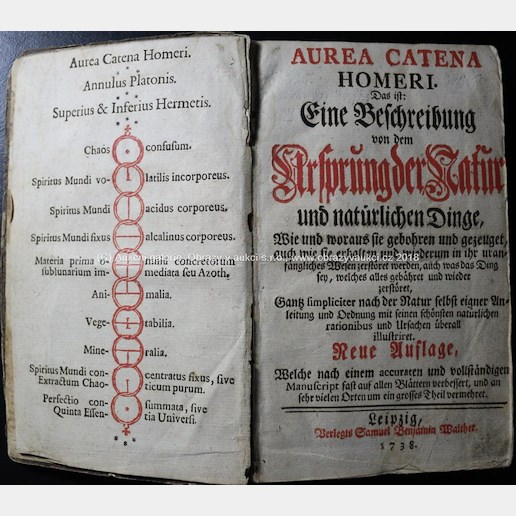 Aurea Catena Homeri.
Annulus Platonis.
Superius & Inferius Hermetis.
Chaos confusum.
Spiritus Mundi vo- latilis incorporeus.
Spiritus Mundi acidus corporeus.
Spiritus Mundi fixus alcalinus corporeus.
Materia prima o- mnium concretorum
sublunarium im- mediata seu Azoth.
Ani- malia.
Vege- tabilia.
Mine- ralia.
Spiritus Mundi con- centratus fixus, sive
Extractum Chao- ticum purum.
Perfectio con- summata, sive
Quinta Essen- tia Universi.
AUREA CATENA
HOMERI.
Das ist:
Eine Beschreibung
von dem
Ursprung der Natur
und natürlichen Dinge,
Wie und woraus sie gebohren und gezeuget,
auch wie sie erhalten und wiederum in ihr uran-
fängliches Wesen zerstöret werden, auch was das Ding
sey, welches alles gebähret und wieder
zerstöret,
Gantz simpliciter nach der Natur selbst eigner An-
leitung und Ordnung mit seinen schönsten natürlichen
rationibus und Ursachen überall
illustriret.
Neue Auflage,
Welche nach einem accuraten und vollständigen
Manuscript fast auf allen Blättern verbessert, und an
sehr vielen Orten um ein grosses Theil vermehret.
Leipzig,
Verlegts Samuel Benjamin Walther.
1738.
www.obrazyvaukci.cz 2018